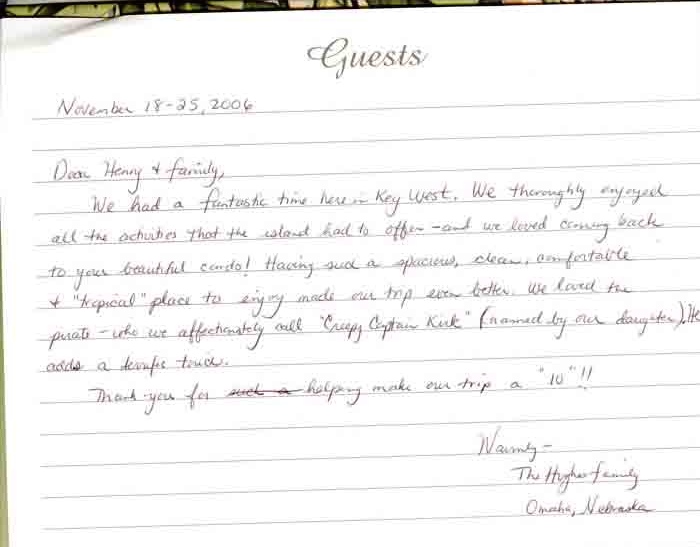 Guests
November 18-25, 2006
Dear Henry & family,
We had a fantastic time here in Key West. We thoroughly enjoyed
all the activities that the island had to offer - and we loved coming back
to your beautiful condo! Having such a spacious, clean, comfortable
& "tropical" place to enjoy made our trip even better. We loved the
pirate - who we affectionately call "Creepy Captain Kirk" (named by our daughter). He
adds a touch.
Thank you for such a helping make our trip a "10"!!
Warmly -
The Hughes family
Omaha, Nebraska